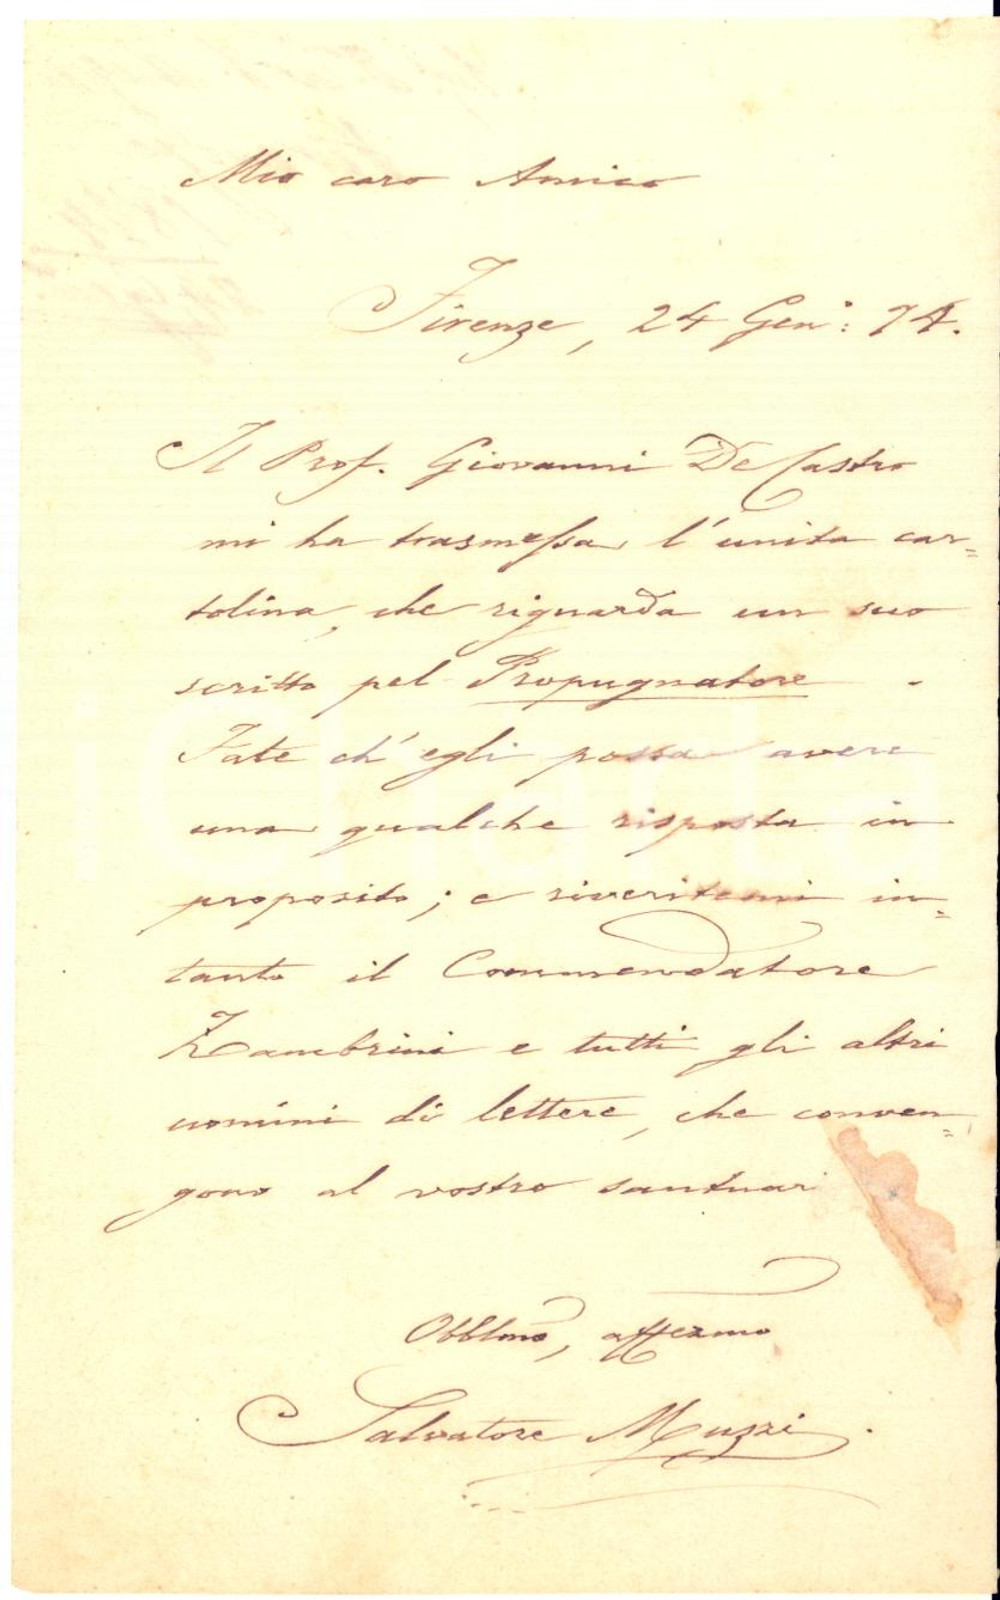 Mio caro Amico
Firenze, 24 Gen: 74.
Il Prof. Giovanni De Castro
mi ha trasmessa l'unita car=
tolina, che riguarda un suo
scritto pel Propugnatore.
Fate ch'egli possa avere
una qualche risposta in
proposito; e riveritemi in=
tanto il Commendatore
Zambrini e tutti gli altri
uomini di lettere, che conven=
gono al vostro santuari
Obblmo, affezmo
Salvatore Muzzi.